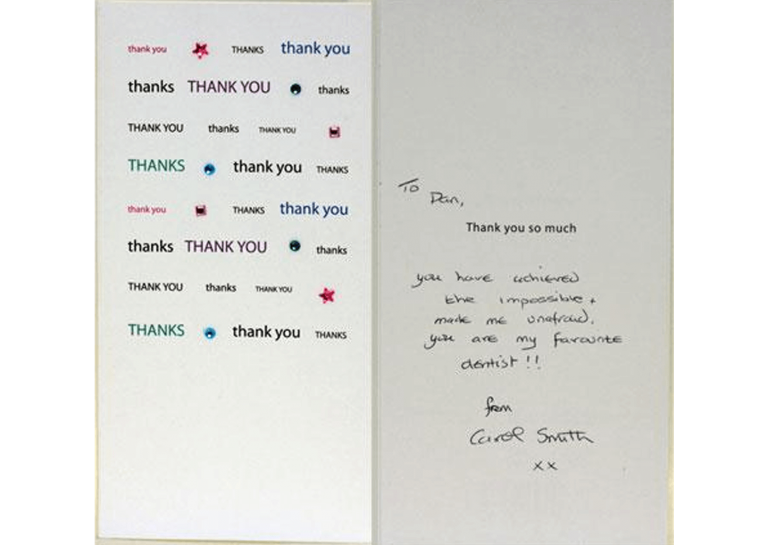 thank you THANKS thank you
thanks THANK YOU thanks
THANK YOU thanks THANK YOU
THANKS thank you THANKS
thank you THANKS thank you
thanks THANK YOU thanks
THANK YOU thanks THANK YOU
THANKS thank you THANKS
To
Dan,
Thank you so much
you have achieved
the impossible +
made me unafraid.
you are my favourite
dentist!!
from
Carol Smith
xx